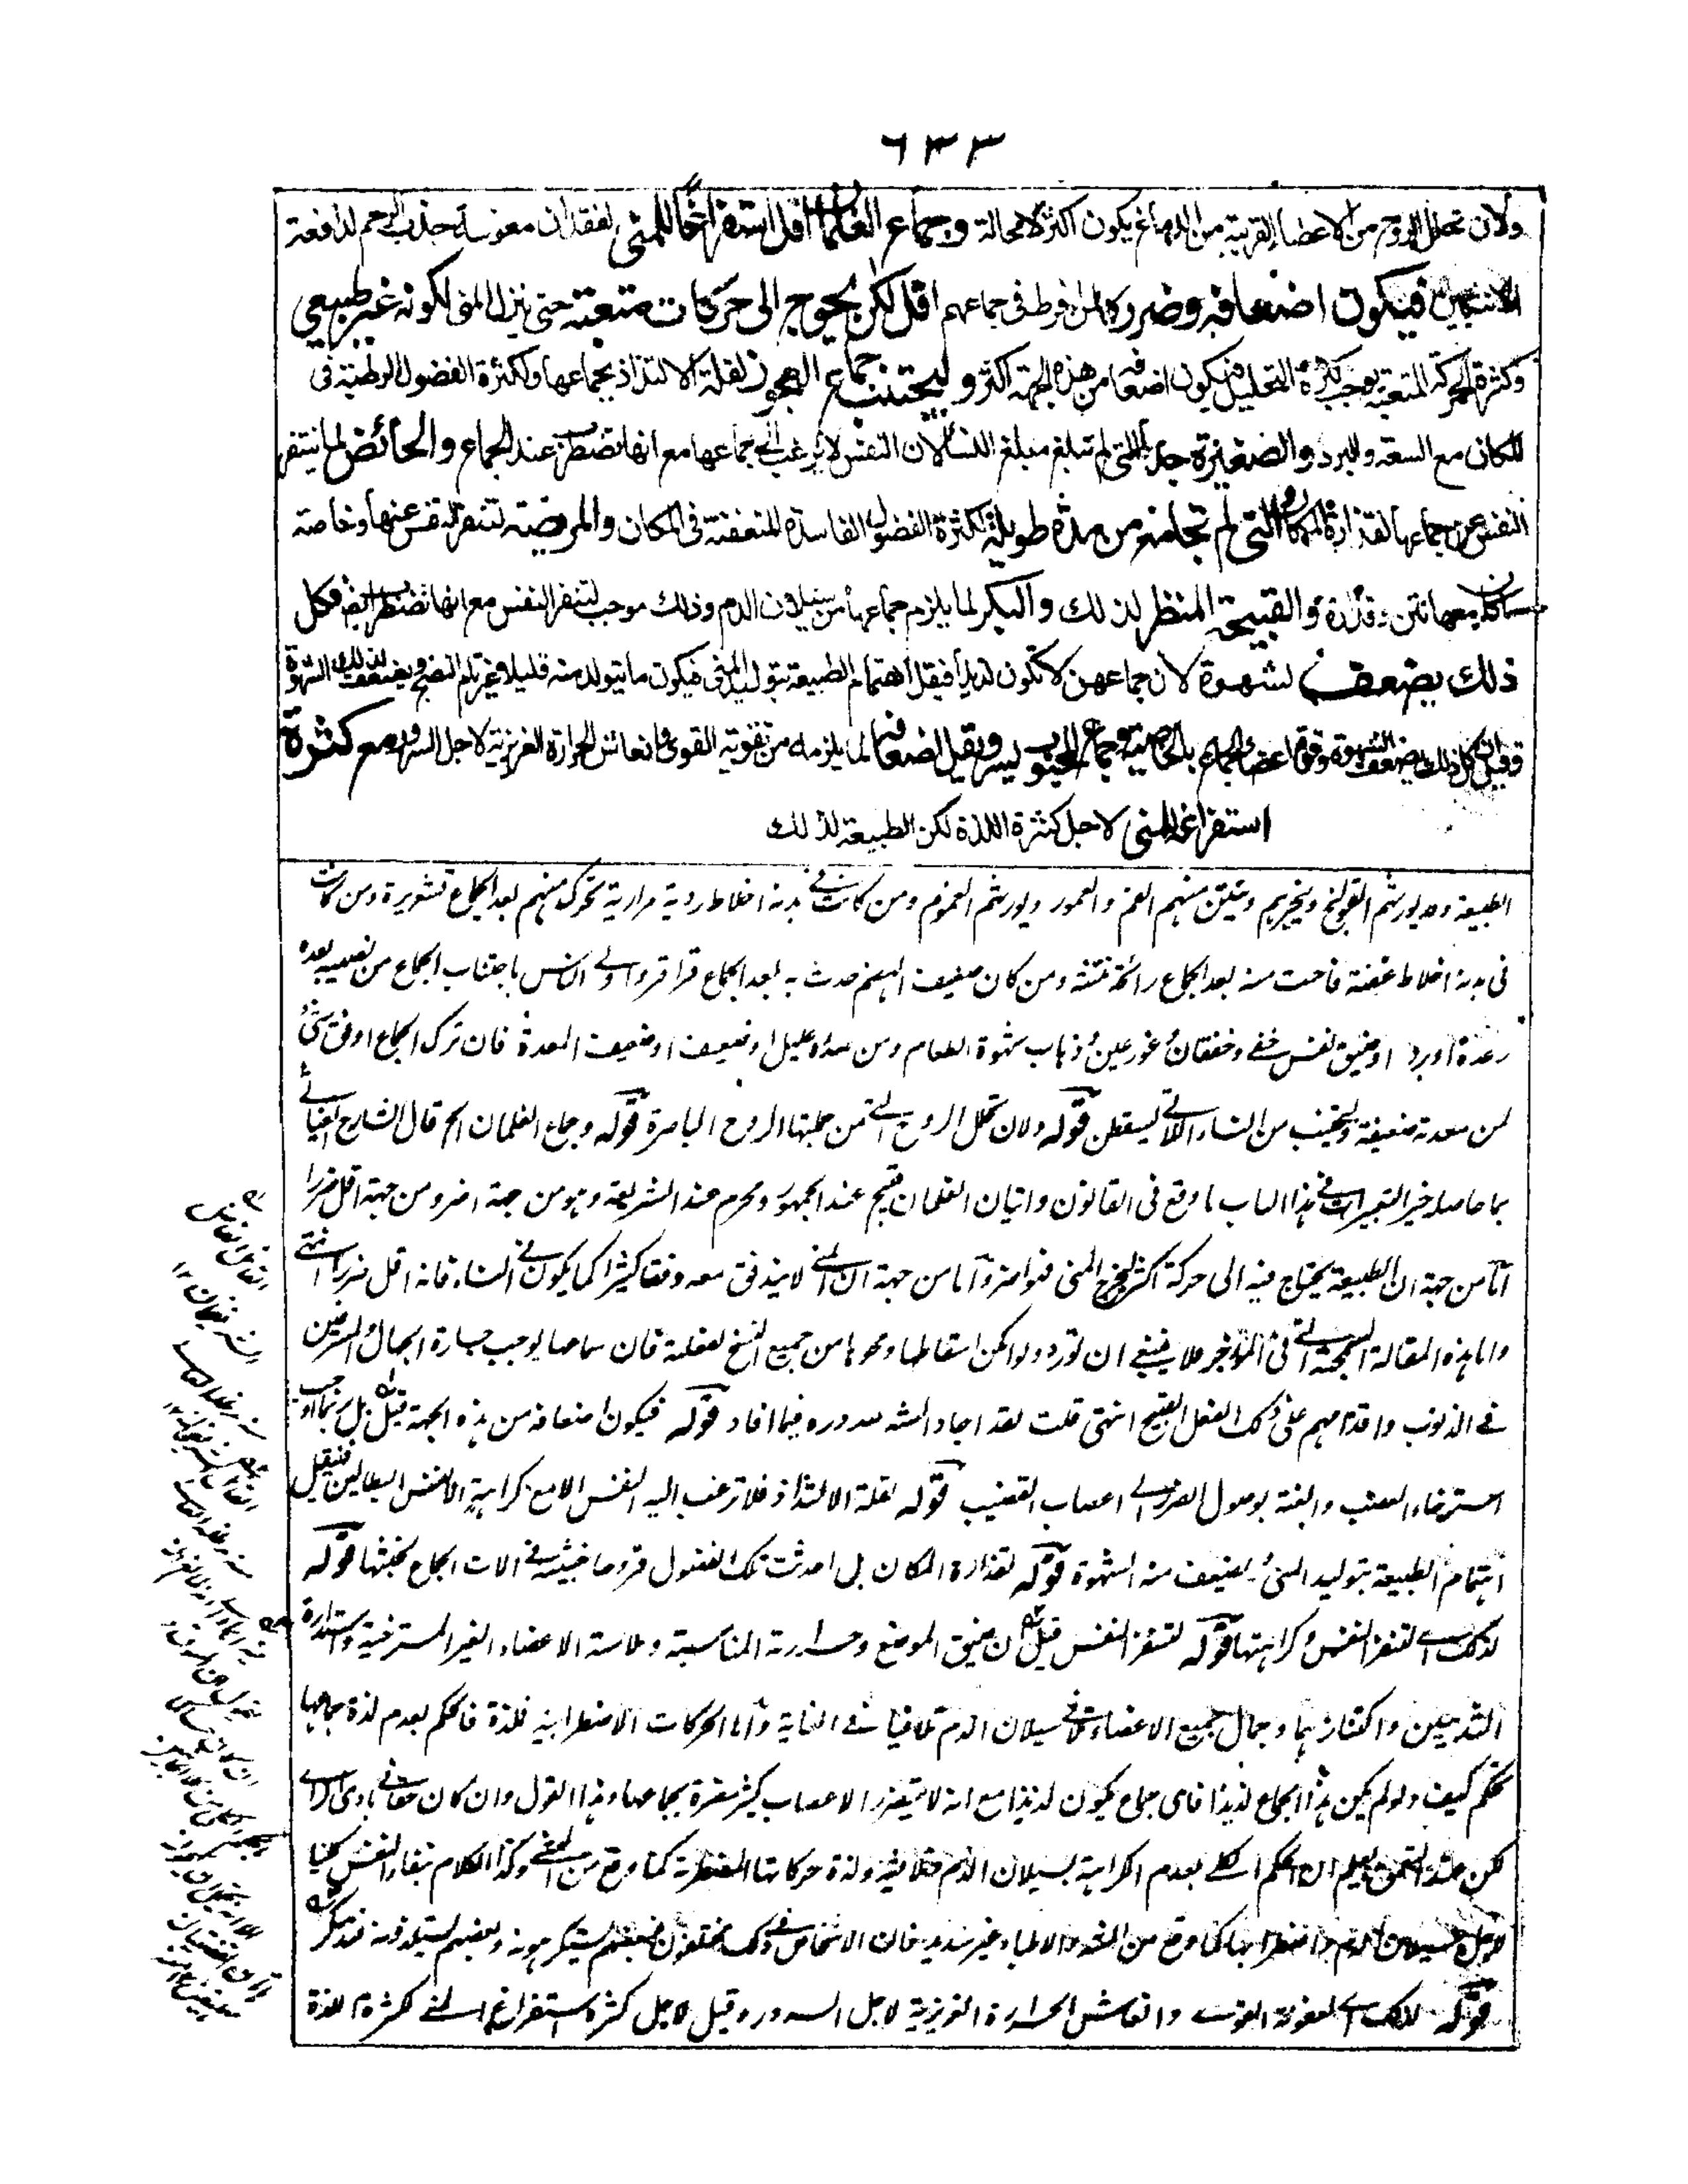 ٦٣٣
ولان تحلل الروح من الاعضاء القريبة من الدماغ يكون اكثر لا محالة وجماع الغلمان اقل استفراغا للمنى لفقدان معونة جذب الرحم لدافعة
الانثيين فيكون اضعافه وضرر كالمن فرط فى جماعهم اقل لكن يحوج الى حركات متعبة حتى ينزل المنى لكونه غير طبيعي
وكثرة الحركة المتعبة يوجب كثرة التحليل فيكون اضعافه من هذه الجهة اكثر و ليجتنب جماع العجوز لقلة الالتذاذ بجماعها ولكثرة الفضول الرطبة فى
المكان مع السعة والبرد والصغيرة جدا التى لم تبلغ مبلغ النساء لان النفس لا يرغب الى جماعها مع انها تضطرب عند الجماع والحائض لما يتنفر
النفس عن جماعها لقذارة المكان والتى لم تجامع من مدة طويلة لكثرة الفضول الفاسدة المتعفنة فى المكان والمريضة لتنفر النفس عنها وخاصة
ان كان معها نتن وقذارة والقبيحة المنظر لذلك والبكر لما يلزم جماعها من سيلان الدم وذلك موجب لتنفر النفس مع انها تضطرب ايضا فكل
ذلك يضعف لشهوة لان جماعهن لا تكون لذيذا فيقل اهتمام الطبيعة بتوليد المنى فيكون ما يتولد منه قليلا وغير تام النضج ويضعف لذلك الشهوة
وقيل ان كل ذلك يضعف الشهوة وقوة اعضاء الجماع بالخاصية وجماع المحبوب يسر ويقل اضعافه لما يلزمه من تقوية القوى وانعاش الحرارة الغريزية لاجل السرور مع كثرة
استفراغه المنى لاجل كثرة اللذة لكن الطبيعة لذلك
الطبيعة وهو يورثهم القولنج ويخر بهم وينتن منهم الفم والعمور ويورثهم الغموم ومن كانت فى بدنه اخلاط ردية مرارية تحرك منهم بعد الجماع قشعريرة ومن كانت
فى بدنه اخلاط عفنة فاحت منه بعد الجماع رائحة منتنة ومن كان ضعيف الهضم حدث به بعد الجماع قراقر واولى الناس باجتناب الجماع من يصيبه بعده
رعدة او برد او ضيق نفس خفى وخفقان وغور عين وذهاب شهوة الطعام ومن صدره عليل او ضعيف او ضعيف المعدة فان ترك الجماع اوفق شئ
لمن معدته ضعيفة وليجتنب من النساء اللاتى يسقطن قوله ولان تحلل الروح التى من جملتها الروح الباصرة قوله وجماع الغلمان الخ قال الشارح
بما حاصله خير التعبيرات فى هذا الباب ما وقع فى القانون واتيان الغلمان قبيح عند الجمهور ومحرم عند الشريعة وهو من جهة اضر ومن جهة اقل ضررا
اما من جهة ان الطبيعة يحتاج فيه الى حركة اكثر ليخرج المنى فهو اضر واما من جهة ان المنى لا يندفق معه دفقا كثيرا كما يكون فى النساء فانه اقل ضررا انتهى
واما هذه المقالة السمجة التى فى المؤجز فلا ينبغى ان تورد ولو امكن اسقاطها ومحوها من جميع النسخ لفعلته فان سماعها يوجب جسارة الجهال والمسرفين
فى الذنوب واقدامهم على ذلك الفعل القبيح انتهى قلت لقد اجاد لله دره فيما افاد قوله فيكون اضعافه من هذه الجهة قيل بل ربما اوجب
استرخاء العصب والعنة بوصول الضرر الى اعصاب القضيب قوله لقلة الالتذاذ فلا ترغب اليه النفس الا مع كراهية
اهتمام الطبيعة بتوليد المنى يضعف منه الشهوة قوله لقذارة المكان بل احدثت تلك الفضول قروحا خبيثة فى الات الجماع لخبثها قوله
لذلك اى لتنفر النفس وكراهيتها قوله لتنفر النفس قيل ان ضيق الموضع وحرارته المناسبة وملاسة الاعضاء الغير المسترخية واستدارة
الثديين واكتنازهما وجمال جميع الاعضاء سيلان الدم تلافيا فى الغاية واما الحركات الاضطرابية فلذة فالحكم بعدم لذة جماعها
تحكم كيف ولو لم يكن هذا الجماع لذيذا فاى جماع يكون لذيذا مع انه لا يتضرر الاعصاب كثير مضرة بجماعها وهذا القول وان كان حقا فى بادى الراى
لكن عند التعمق يعلم ان الحكم الكلى بعدم الكراهية بسيلان الدم ولذة حركاتها المضطربة كما وقع من البعض وكذا الكلام بتنفر النفس كليا
لاجل سيلان الدم واضطرابها كما وقع من الشارح والاطباء غير سديد فان الاشخاص فى ذلك مختلفون فبعضهم يستكرهونه وبعضهم يستلذونه
قوله لذلك اى لتقوية القوى وانعاش الحرارة الغريزية لاجل السرور وقيل لاجل كثرة استفراغ المنى لكثرة اللذة